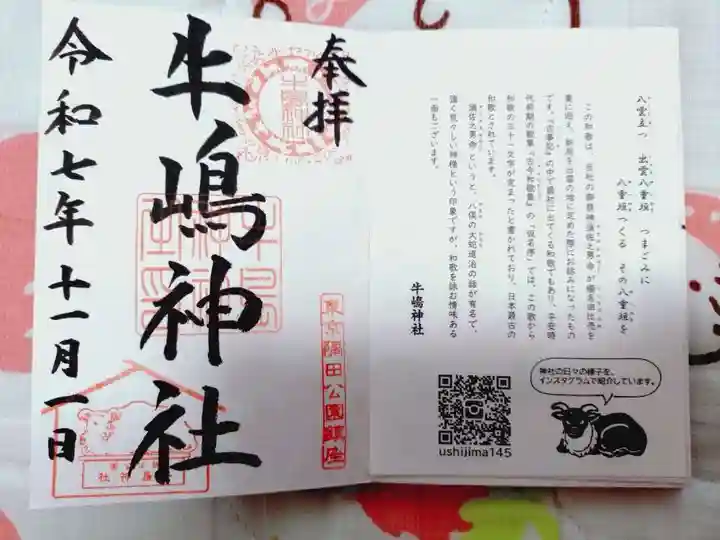 奉拝
牛嶋神社
令和七年十一月一日
牛嶋神社
東京隅田公園鎮座
八雲立つ 出雲八重垣 つまごみに
八重垣つくる その八重垣を
この和歌は、当社の御祭神須佐之男命が櫛名田比売を
妻に迎え、新居を出雲の地に定めた際にお詠みになったもの
です。『古事記』の中で最初に出てくる和歌でもあり、平安時
代前期の歌集『古今和歌集』の「仮名序」では、この歌から
和歌の三十一文字が定まったと書かれており、日本最古の
和歌とされています。
須佐之男命というと、八俣の大蛇退治の話が有名で、
強く荒々しい神様という印象ですが、和歌を詠む情味ある
一面もございます。
牛嶋神社
神社の日々の様子を、
インスタグラムで紹介しています。
ushijima145